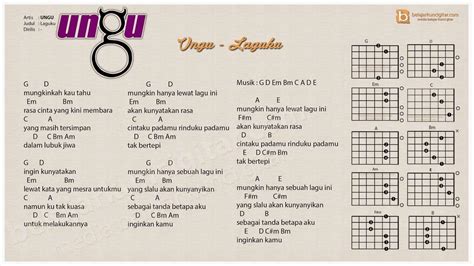 Artis : UNGU
Judul : Laguku
Dirilis : -
ungu
Ungu - Laguku
belajarkuncigitar.com
G D
mungkinkah kau tahu
Em Bm
rasa cinta yang kini membara
C A
yang masih tersimpan
D C Bm Am
dalam lubuk jiwa
G D
ingin kunyatakan
Em Bm
lewat kata yang mesra untukmu
C A
namun ku tak kuasa
D C Bm Am
untuk melakukannya
G D
mungkin hanya lewat lagu ini
Em Bm
akan kunyatakan rasa
C A
cintaku padamu rinduku padamu
D C Bm Am
tak bertepi
G D
mungkin hanya sebuah lagu ini
Em Bm
yang slalu akan kunyanyikan
C A
sebagai tanda betapa aku
D C Bm Am
inginkan kamu
Musik : G D Em Bm C A D E
A E
mungkin hanya lewat lagu ini
F#m C#m
akan kunyatakan rasa
D B
cintaku padamu rinduku padamu
E D C#m Bm
tak bertepi
A E
mungkin hanya sebuah lagu ini
F#m C#m
yang slalu akan kunyanyikan
D B
sebagai tanda betapa aku
E D C#m Bm
inginkan kamu